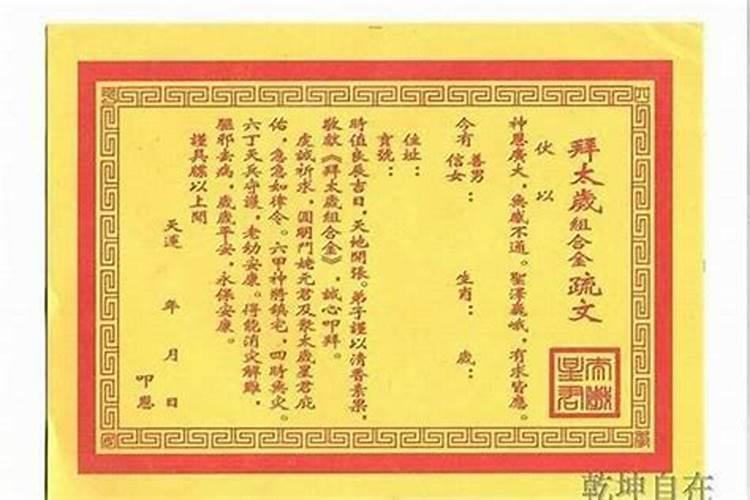 拜太歲組合金疏文
伏以
神恩廣大，無感不通。聖澤巍峨，有求皆應。
今有善男信女：　生肖：　歲：
住址：
寶號：
時值良辰吉日，天地開張。弟子謹以清香素果，
敬獻《拜太歲組合金》，誠心叩拜。
虔誠祈求，圓明斗姥元君及眾太歲星君庇
佑，急急如律令。六甲神將鎮宅，四時無災。
六丁天兵守護，老幼安康。得能消災解難，
驅邪去病，歲歲平安，永保安康。
謹具牒以上聞
天運　年　月　日
叩恩
太歲星君
乾坤自在